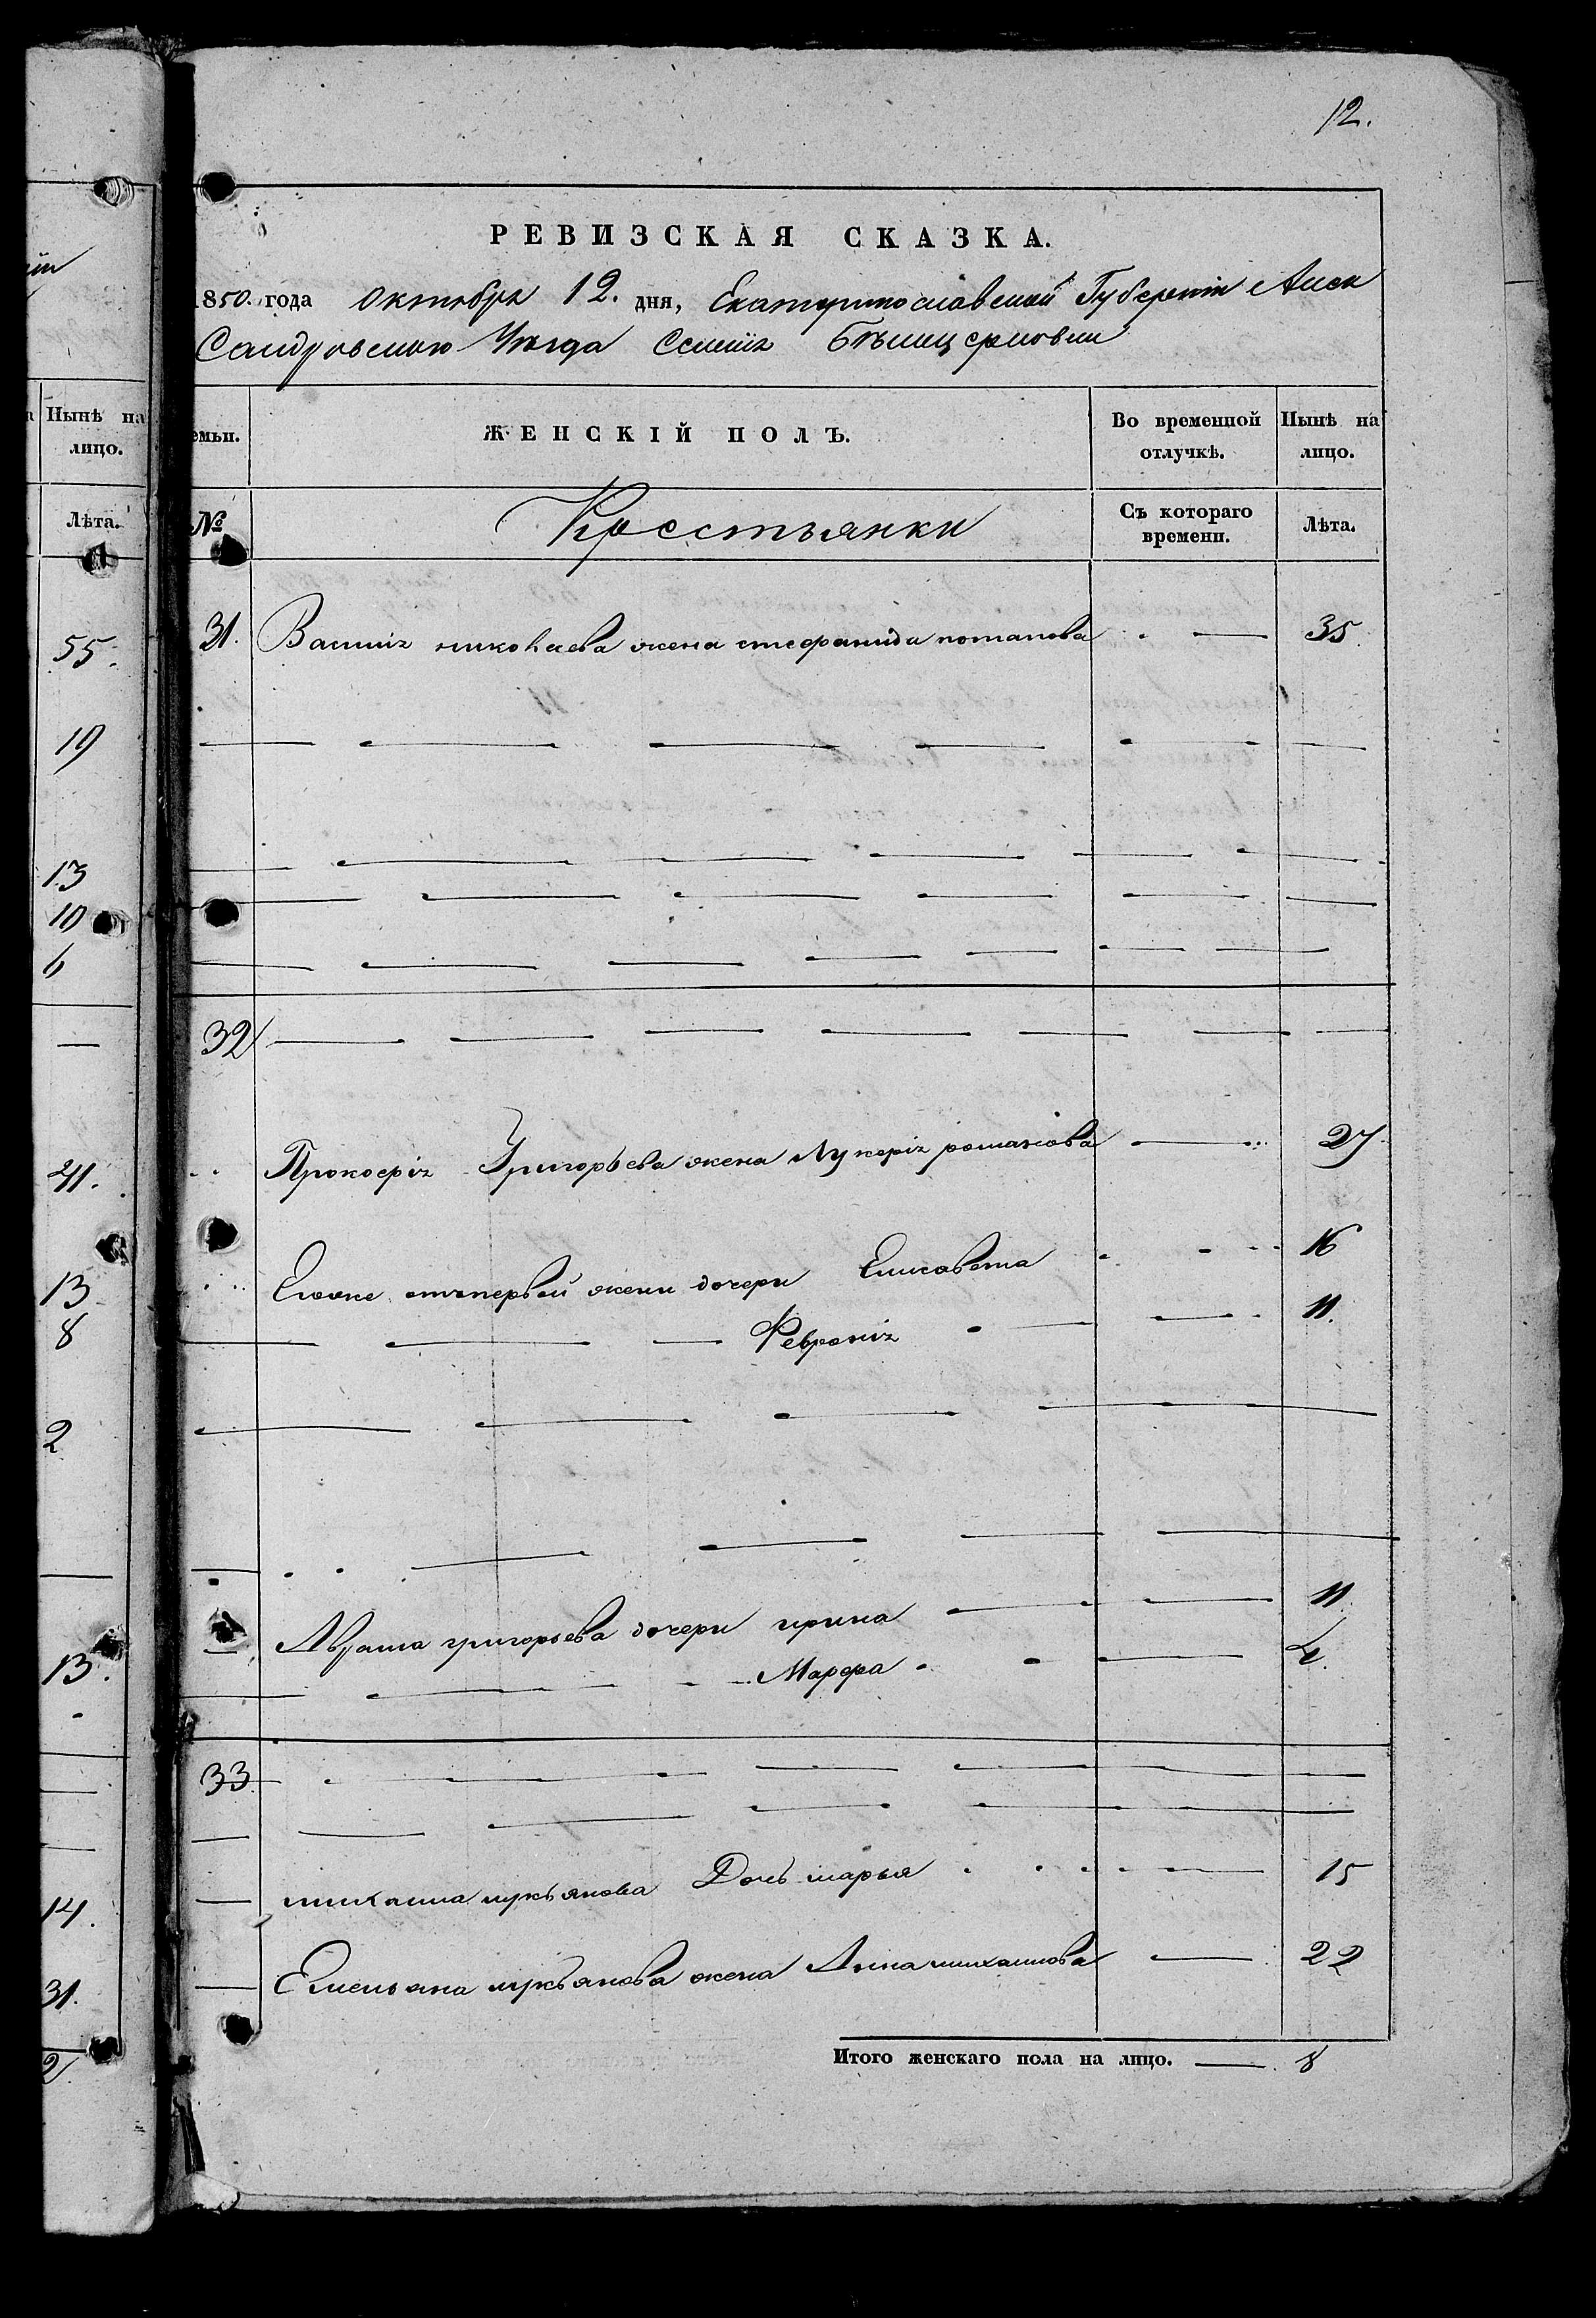 12.
РЕВИЗСКАЯ СКАЗКА.
1850. года октября 12. дня, Екатеринославской Губерніи Алек
Сандровского Уезда Селѣнія
Нынѣ на лицо.
емьи.
ЖЕНСКІЙ ПОЛЪ.
Во временной отлучкѣ.
Нынѣ на лицо.
Лѣта.
№
Кресстьянки
Съ котораго времени.
Лѣта.
55.
31. Василія николаева жена стефанида потапова 35.
19
13
10
6
32
41. Прокофія Григорьева жена Лукерія романова 27
13 Еговже отъпервой жени дочери Елисавета 16
8 Февронія 11.
2
Абрама григорьева дочери ирина 11
13. Марфа 4.
33
14. михаила лукъянова Дочь марья 15
31. Емельяна лукъянова жена Анна михаилова 22
Итого женскаго пола на лицо. 8
2